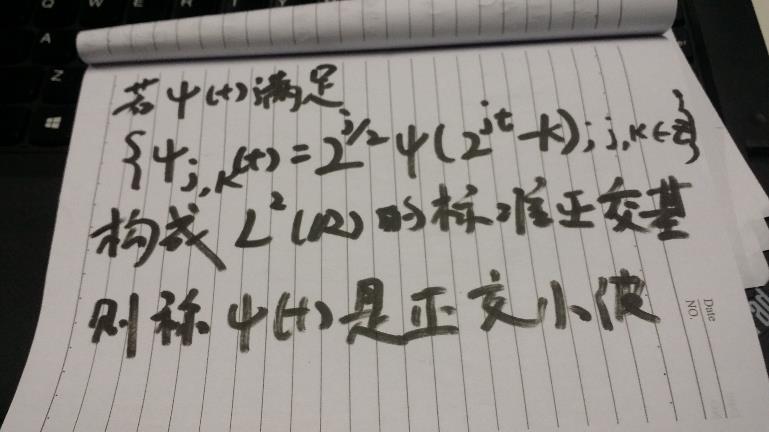 若ψ(t)满足
{ψ_{j,k}(t)=2^{j/2}ψ(2^{jt}-k);j,k∈Z}
构成L²(R)的标准正交基
则称ψ(t)是正交小波
Date
NO.